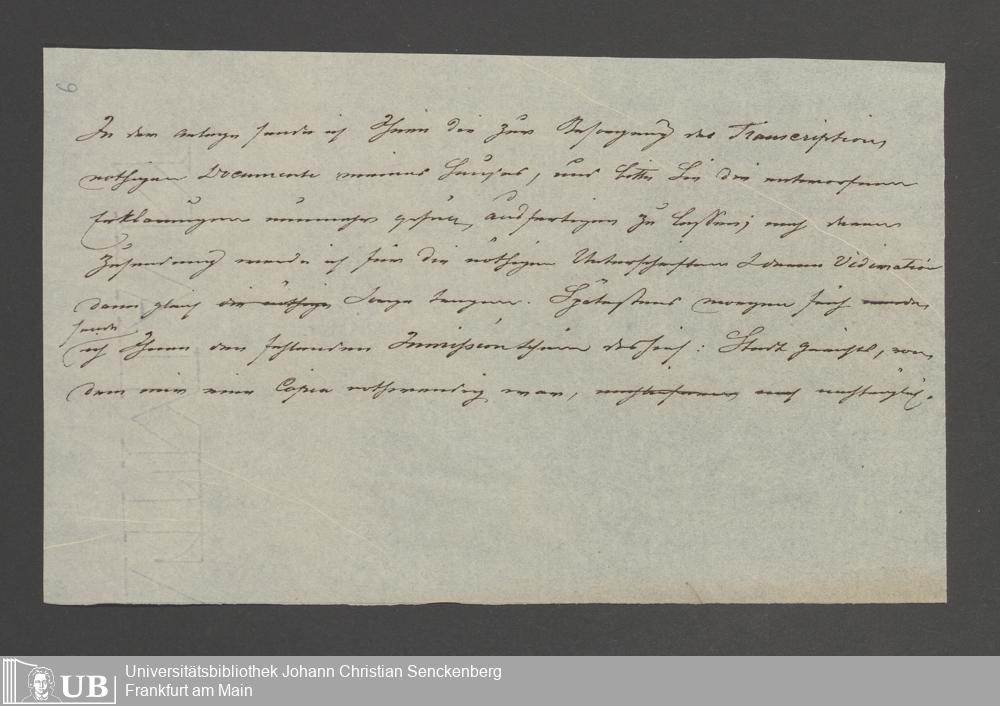 6
In der Anlage sende ich Ihnen die zur Besorgung des Transcriptions
nöthigen Documente meines Hauses, und bitte Sie die entworfenen
Erklärungen nunmehr gefäll. ausfertigen zu lassen; nach deren
Zusendung werde ich für die nöthigen Unterschriften & deren Vidimation
dann gleich die nöthige Sorge tragen. Spätestens morgen früh werde
sende
ich Ihnen den fehlenden Immissionsschein des hies: Stadt Gerichts, von
dem mir eine Copia nothwendig war, noch nachträglich.
Universitätsbibliothek Johann Christian Senckenberg
Frankfurt am Main
UB